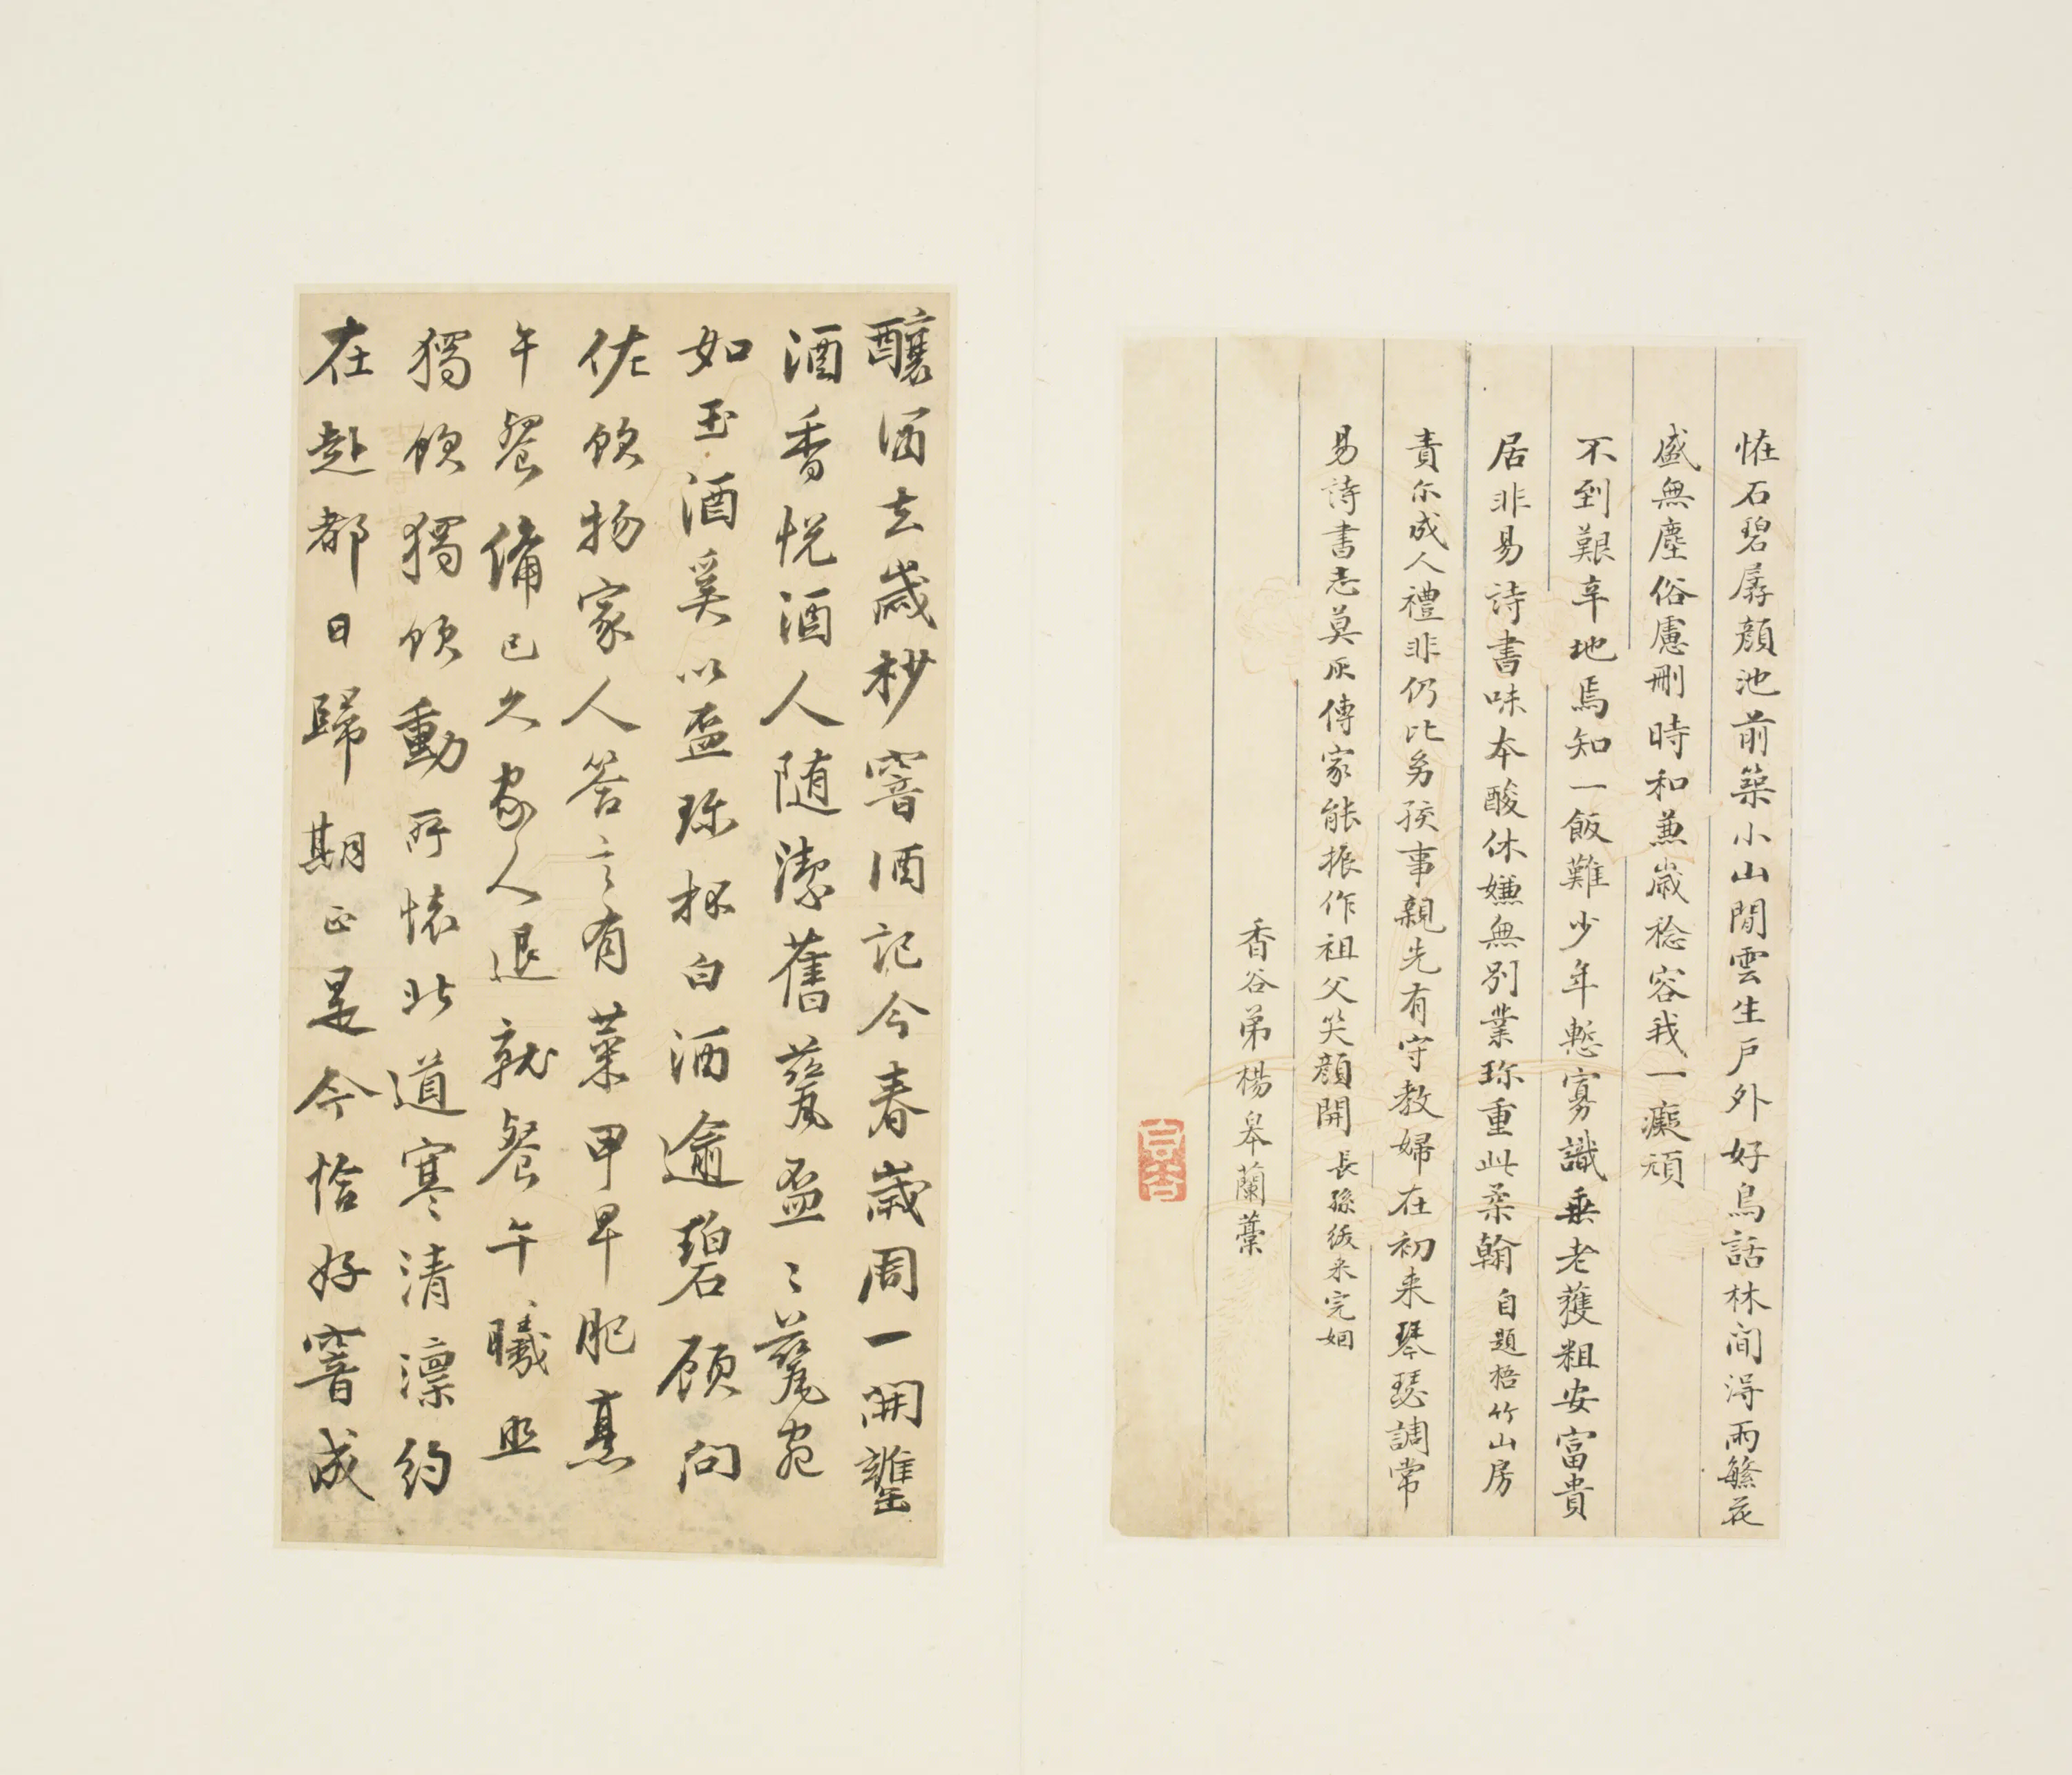 恠石碧孱顔池前築小山閒雲生戶外好鳥話林间淂雨繁花
盛無塵俗慮刪時和兼歲稔容我一癡頑
不到艱辛地焉知一飯難少年慙寡識垂老獲粗安富貴
居非易詩書味本酸休嫌無別業珎重此柔翰自題梧竹山房
責尓成人禮非仍比㓜孩事親先有守教婦在初来琴瑟調常
易詩書志莫灰傳家能振作祖父笑顔開長孫紱来完姻
香谷弟楊皋蘭藁
釀酒去歲杪窨酒記今春歲周一開罋
酒香悅酒人随潔舊甆盃〻甆宛
如玉酒奚以盃珎杯白酒逾碧顧问
佐飲物家人答言有菜甲早肥熹
午餐備已久家人退就餐午曦照
獨飲獨飲動所懐北道寒清凛約
在赴都日歸期正是今恰好窨成